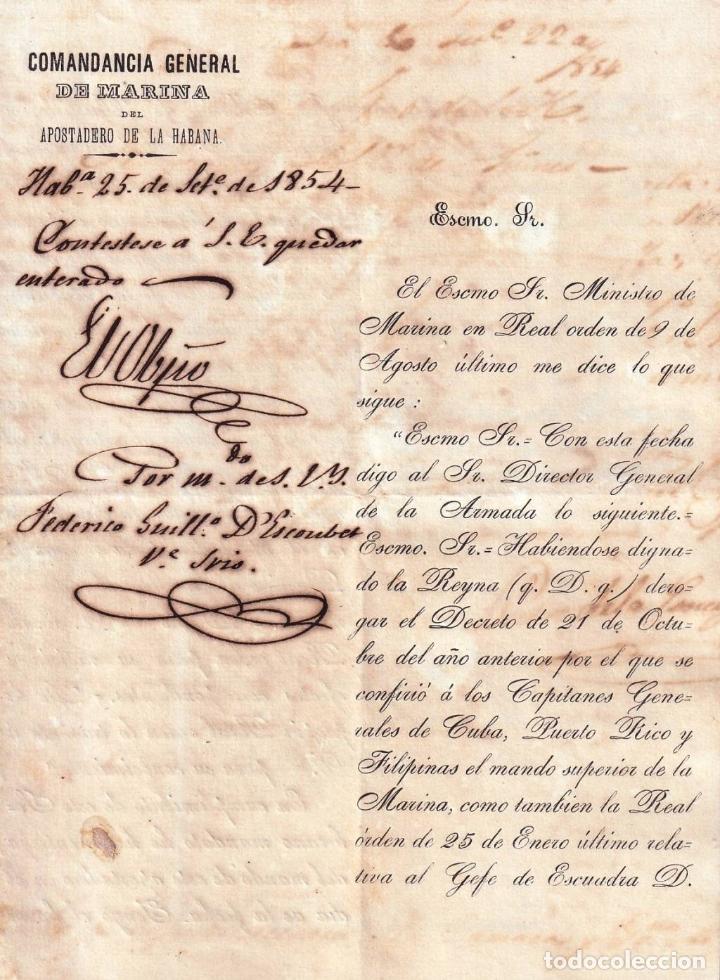 COMANDANCIA GENERAL
DE MARINA
DEL
APOSTADERO DE LA HABANA.
Hab.ª 25. de Set.e de 1854-
Contestese á S. E. quedar
enterado
El Obpo
Por m.do de S. S. Y.
Federico Guill.o D'Escoubet
V.e Srio.
22
1854
Escmo. Sr.
El Escmo Sr. Ministro de
Marina en Real orden de 9 de
Agosto último me dice lo que
sigue :
"Escmo Sr.= Con esta fecha
digo al Sr. Director General
de la Armada lo siguiente.=
Escmo. Sr.= Habiendose digna=
do la Reyna (q. D. g.) dero=
gar el Decreto de 21 de Octu=
bre del año anterior por el que se
confirió á los Capitanes Gene=
rales de Cuba, Puerto Rico y
Filipinas el mando superior de la
Marina, como tambien la Real
órden de 25 de Enero último rela=
tiva al Gefe de Escuadra D.
todocoleccion